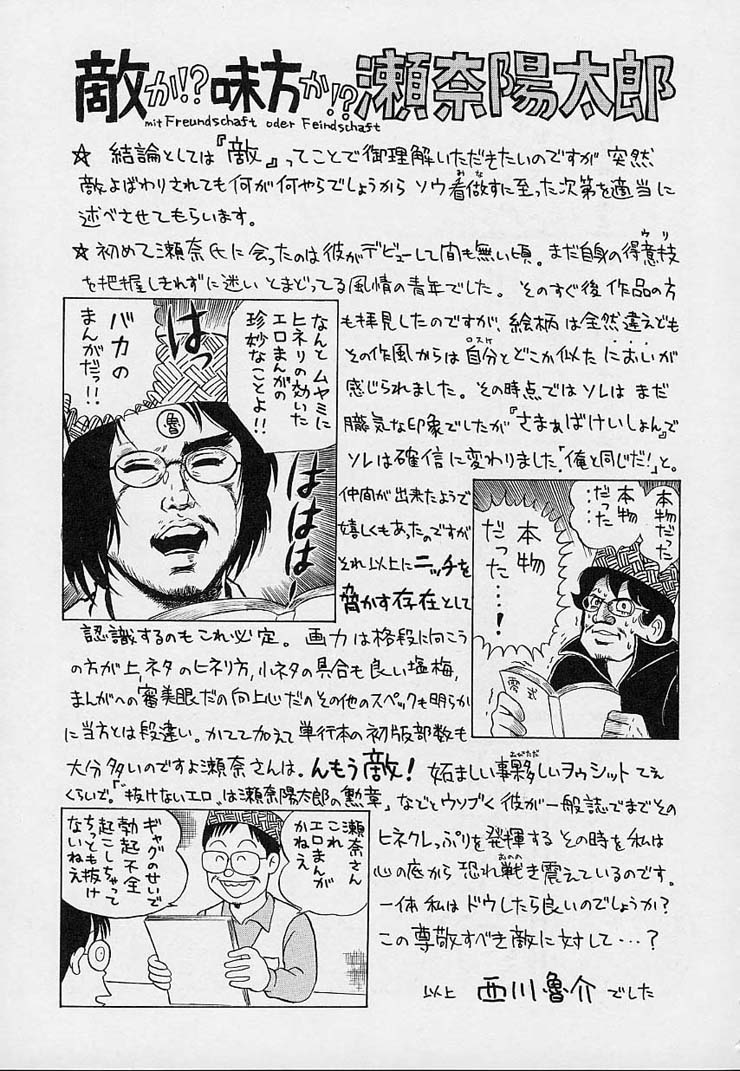 敵か!?味方か!?瀬奈陽太郎
mit Freundschaft oder Feindschaft
☆ 結論としては『敵』ってことで御理解いただきたいのですが 突然
敵よばわりされても何が何やらでしょうから ソウ看做すに至った次第を適当に
みな
述べさせてもらいます。
☆ 初めて瀬奈氏に会ったのは彼がデビューして間も無い頃。まだ自身の得意技
ウリ
を把握しきれずに迷い とまどってる風情の青年でした。そのすぐ後 作品の方
も拝見したのですが、絵柄は全然違えども
その作風からは自分とどこか似た においが
ロスケ
感じられました。その時点ではソレは まだ
朧気な印象でしたが『さまぁばけいしょん』で
ソレは確信に変わりました「俺と同じだ!」と。
仲間が出来たようで
嬉しくもあったのですが
それ以上にニッチを
脅かす存在として
なんとムヤミに
ヒネリの効いた
エロまんがの
珍妙なことよ!!
はっ
ははは
バカの
まんがだっ!!
魯
本物だった
本物
だった…
本物
だった…!
零式
認識するのもこれ必定。画力は格段に向こう
の方が上、ネタのヒネリ方、小ネタの具合も良い塩梅、
まんがへの審美眼だの向上心だのその他のスペックも明らか
に当方とは段違い。かてて加えて単行本の初版部数も
大分多いのですよ瀬奈さんは。んもう敵! 妬ましい事夥しいヲゥシット てぇ
おびただ
くらいで。『"抜けないエロ"は瀬奈陽太郎の勲章』などとウソブく彼が一般誌でまでその
ヒネクレっぷりを発揮する その時を私は
心の底から恐れ戦き震えているのです。
おのの
一体 私はドウしたら良いのでしょうか?
この尊敬すべき敵に対して…?
瀬奈さん
これ
エロまんが
かねえ
ギャグのせいで
勃起不全
起こしちゃって
ちっとも抜け
ないねえ
以上 西川魯介 でした